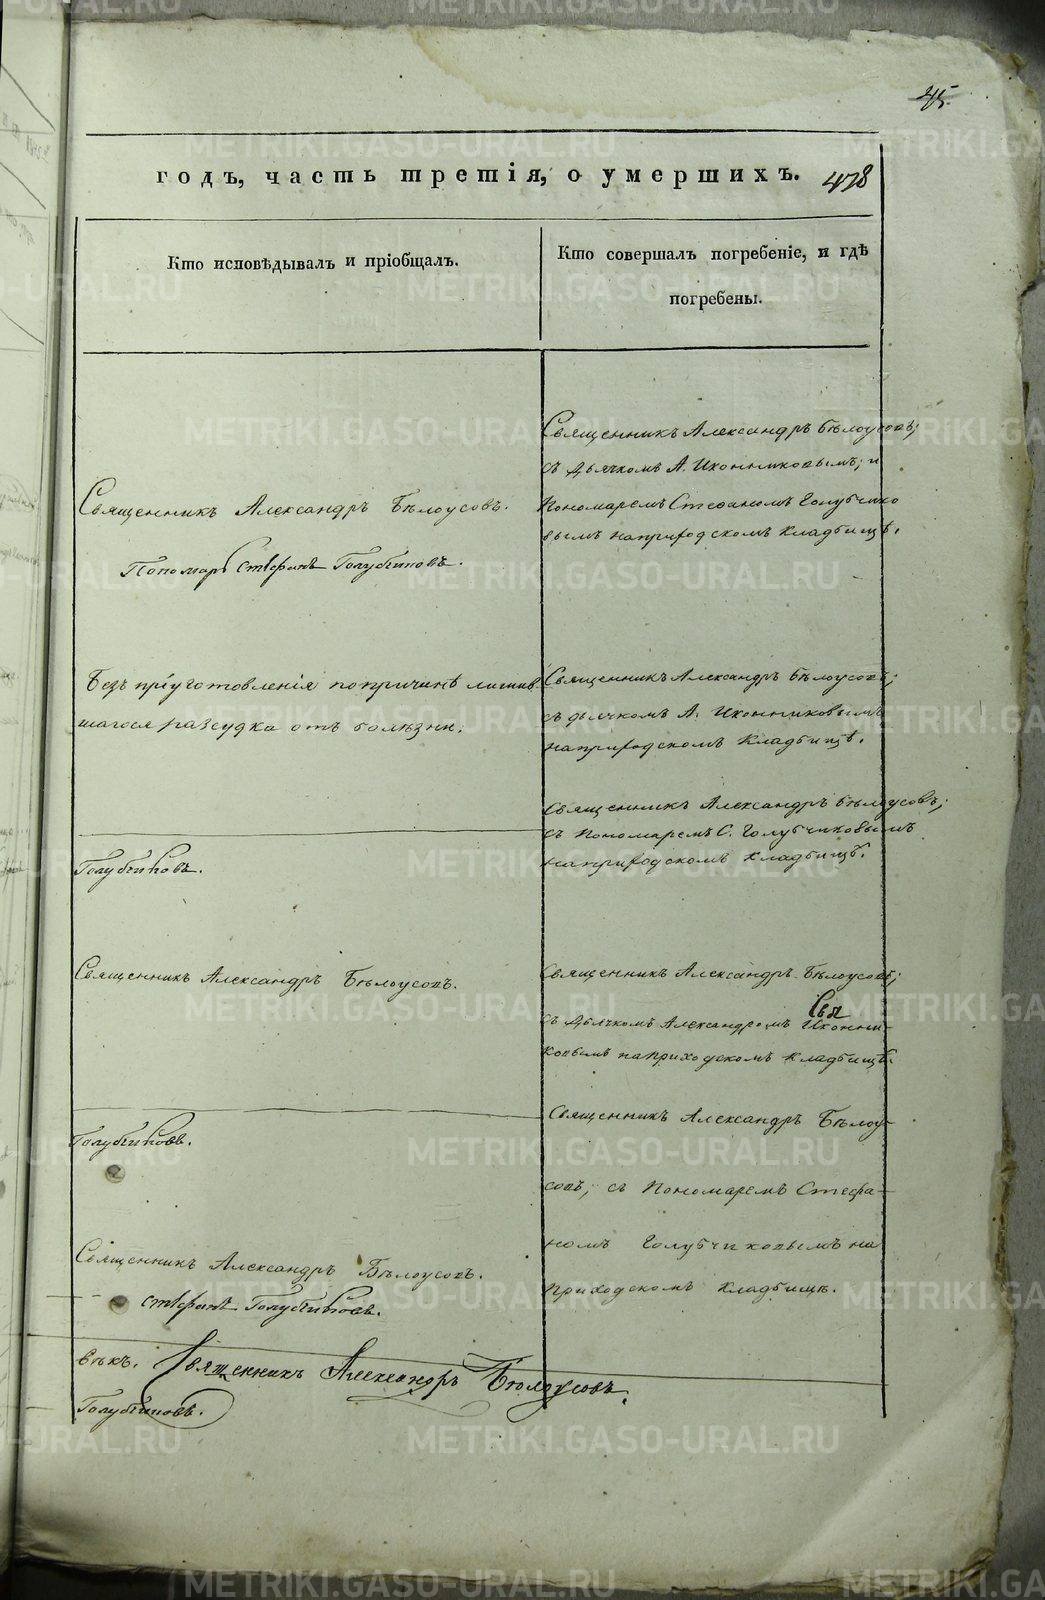 45.
годъ, часть третія, о умершихъ. 478
Кто исповѣдывалъ и пріобщалъ.
Кто совершалъ погребеніе, и гдѣ
погребены.
Священникъ Александръ Бѣлоусовъ.
Пономарь Стефанъ Голубчиковъ.
Священникъ Александръ Бѣлоусовъ;
съ дьячкомъ А. Иконниковымъ; и
Пономаремъ Стефаномъ Голубчико
вымъ на приходскомъ кладбищѣ.
Безъ пріуготовленія по причинѣ лишив
шагося разсудка отъ болѣзни.
Священникъ Александръ Бѣлоусовъ;
съ дьячкомъ А. Иконниковымъ
на приходскомъ кладбищѣ.
Голубчиковъ.
Священникъ Александръ Бѣлоусовъ;
съ Пономаремъ С. Голубчиковымъ
на приходскомъ кладбищѣ.
Священникъ Александръ Бѣлоусовъ.
Священникъ Александръ Бѣлоусовъ;
Свя
съ дьячкомъ Александромъ Иконни-
ковымъ на приходскомъ кладбищѣ.
Голубчиковъ.
Священникъ Александръ Бѣлоу-
совъ; съ Пономаремъ Стефа-
номъ Голубчиковымъ на
приходскомъ кладбищѣ.
Священникъ Александръ Бѣлоусовъ.
Стефанъ Голубчиковъ.
вѣкъ. Священникъ Александръ Бѣлоусовъ.
Голубчиковъ.
METRIKI.GASO-URAL.RU